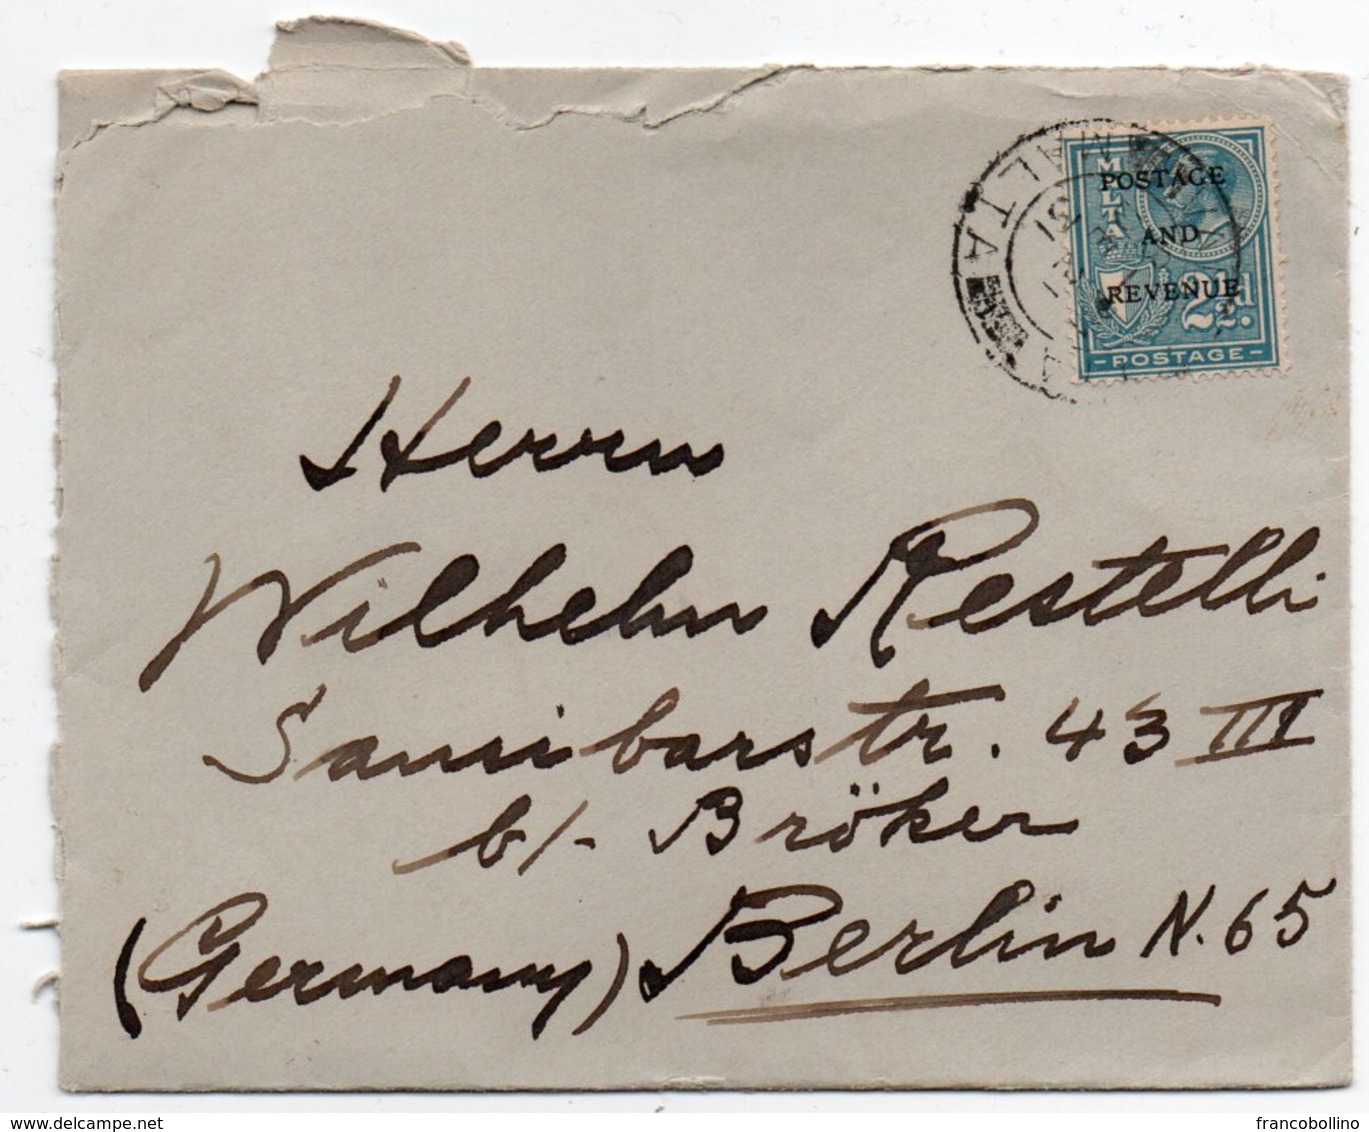 MALTA
POSTAGE
AND
REVENUE
2½d.
POSTAGE
MALTA
Herrn
Wilhelm Restelli
Sansibarstr. 43 III
b/- Bröker
(Germany) Berlin N. 65
www.delcampe.net
francobollino